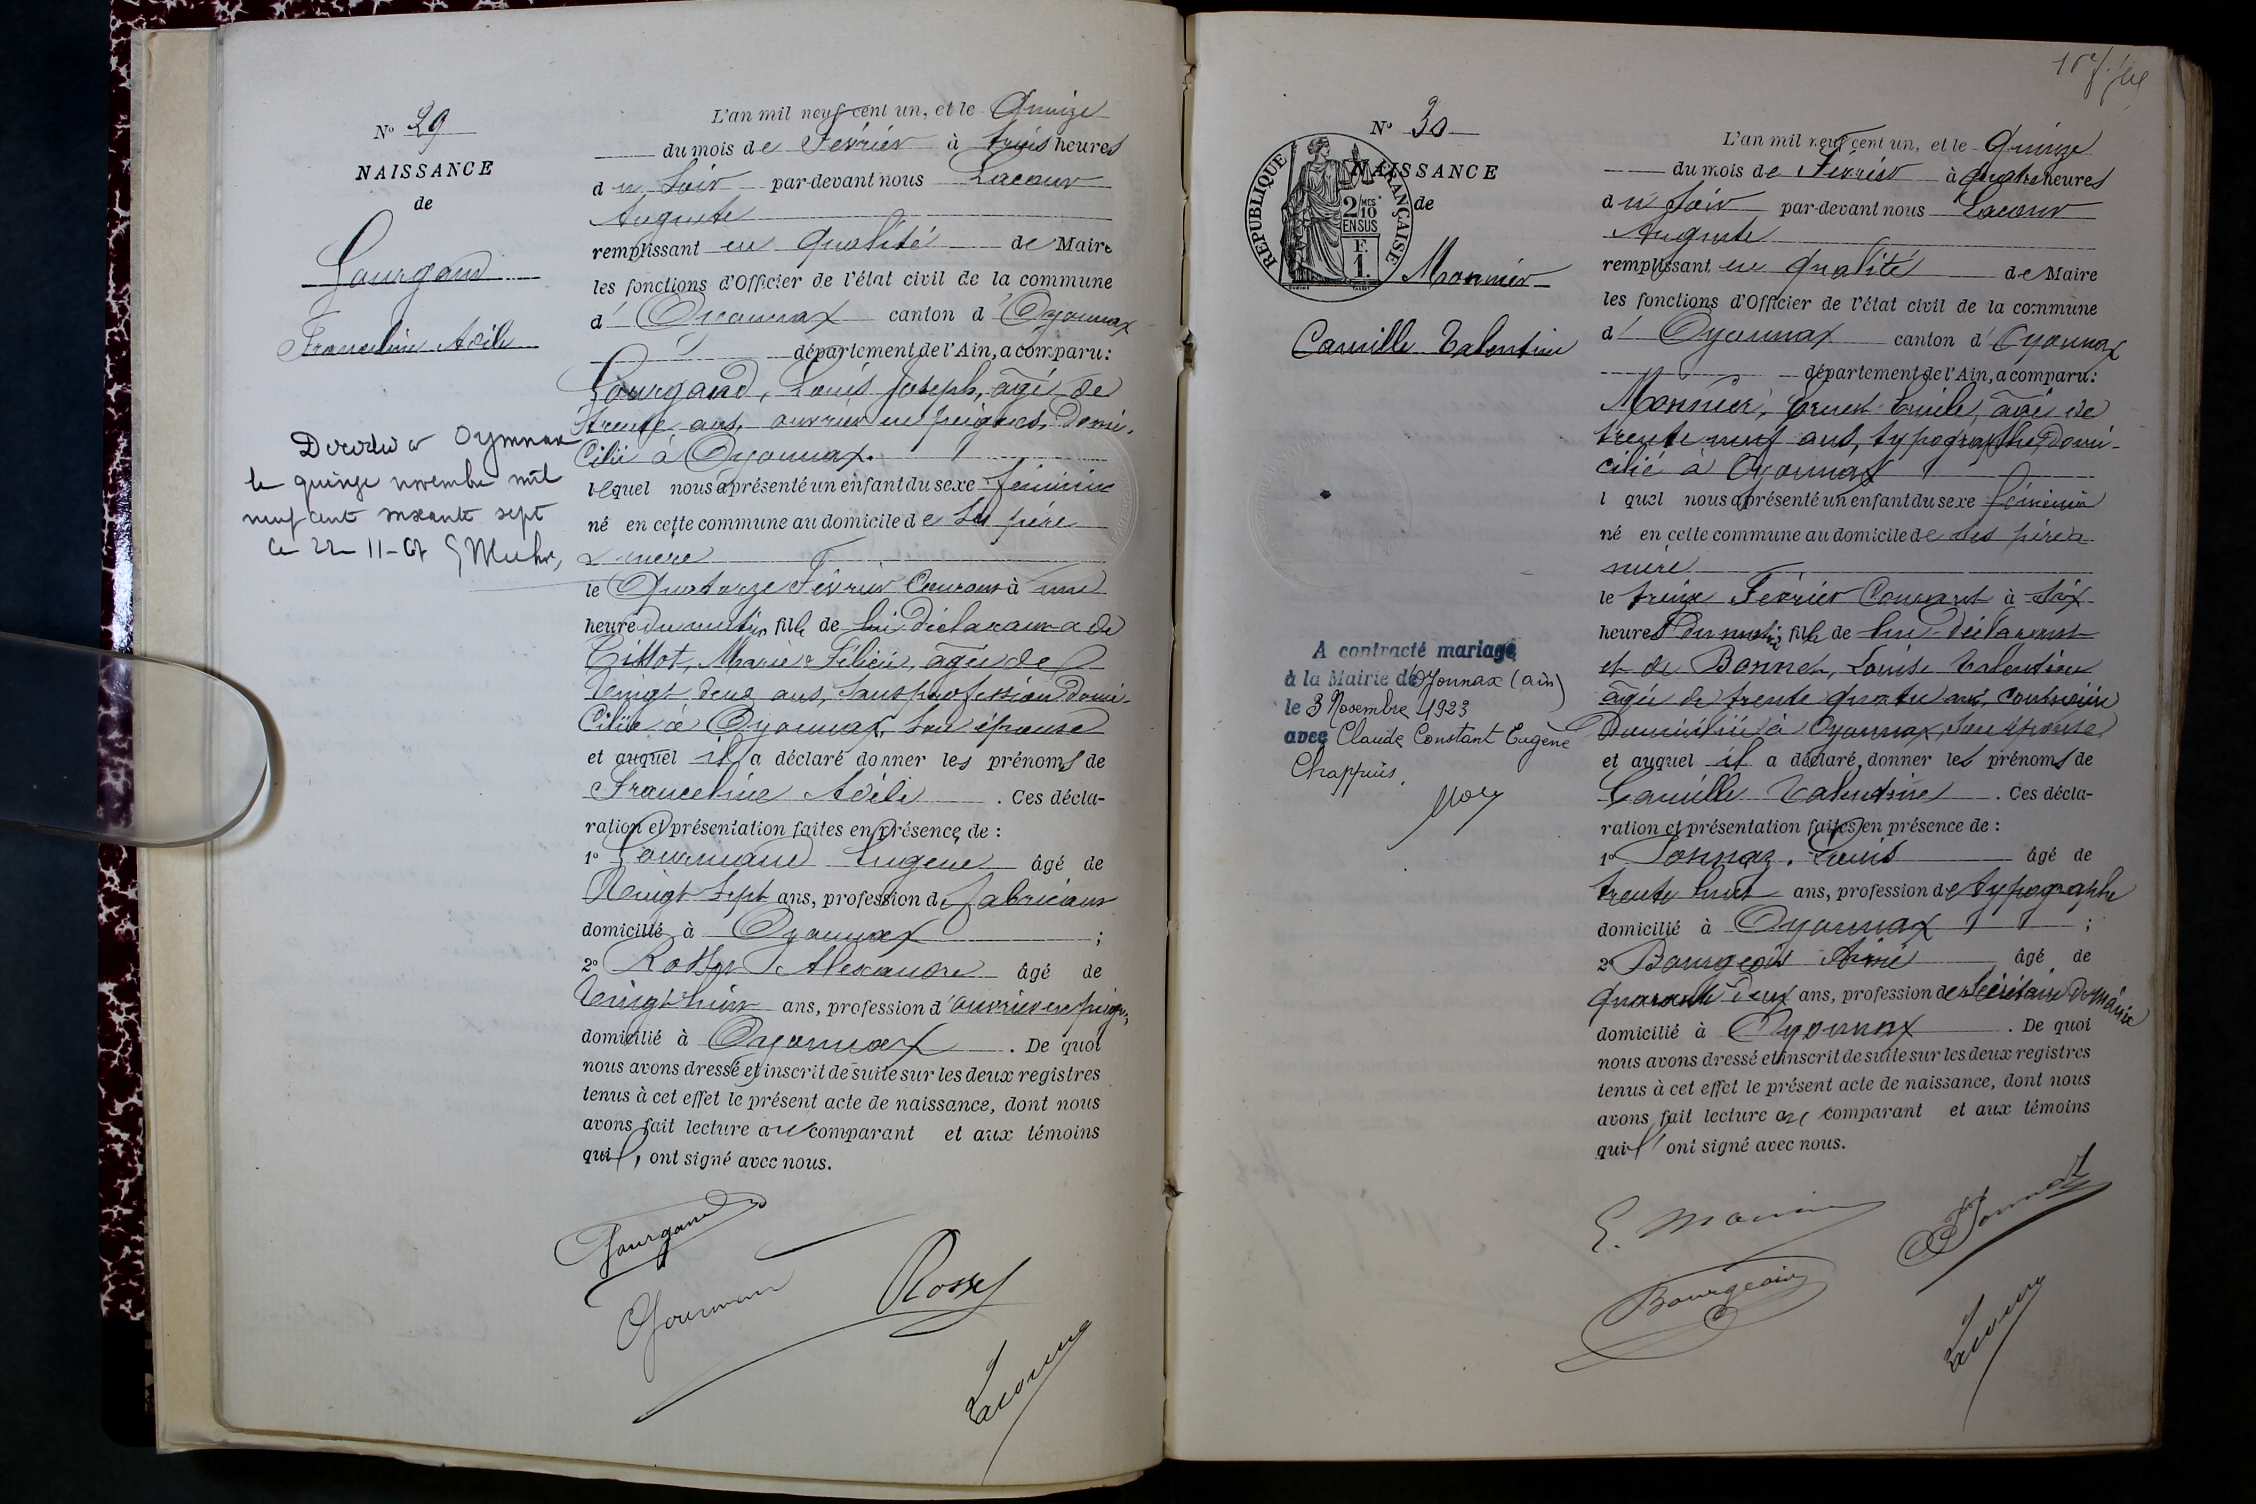 N° 29
NAISSANCE
de
Gourgand
Franceline Adèle
Décédée à Oyonnax
le quinze novembre mil
neuf cent soixante sept
Le 22-11-67
L'an mil neuf cent un, et le Quinze
du mois de Février à trois heures
du soir par-devant nous Lacour
Auguste
remplissant en qualité de Maire
les fonctions d'Officier de l'état civil de la commune
d' Oyonnax canton d' Oyonnax
département de l'Ain, a comparu:
Gourgand, Louis Joseph, âgé de
trente ans, ouvrier en peignes, domi-
cilié à Oyonnax.
lequel nous a présenté un enfant du sexe féminin
né en cette commune au domicile de ses père
& mère
le Quatorze Février courant à une
heure du matin, fille de lui déclarant & de
Gillot, Marie Félicie, âgée de
vingt deux ans, sans profession domi-
ciliée à Oyonnax, son épouse
et auquel il a déclaré donner les prénoms de
Franceline Adèle . Ces décla-
ration et présentation faites en présence de :
1° Gourmand Eugène âgé de
Vingt sept ans, profession de fabricant
domicilié à Oyonnax ;
2° Rosset Alexandre âgé de
Vingt huit ans, profession d'ouvrier en peignes
domicilié à Oyonnax . De quoi
nous avons dressé et inscrit de suite sur les deux registres
tenus à cet effet le présent acte de naissance, dont nous
avons fait lecture au comparant et aux témoins
qui, ont signé avec nous.
Gourgand
Gourmand
Rosset
Lacour
N° 30
NAISSANCE
de
REPUBLIQUE FRANÇAISE
2/10 MES
EN SUS
F.
1.
Monnier
Camille Valentine
A contracté mariage
à la Mairie d'Oyonnax (ain)
le 3 Novembre 1923
avec Claude Constant Eugène
Chappuis.
L'an mil neuf cent un, et le Quinze
du mois de Février à quatre heures
du soir par-devant nous Lacour
Auguste
remplissant en qualité de Maire
les fonctions d'Officier de l'état civil de la commune
d' Oyonnax canton d' Oyonnax
département de l'Ain, a comparu:
Monnier, Ernest Emile, âgé de
trente neuf ans, typographe, domi-
cilié à Oyonnax
l quel nous a présenté un enfant du sexe féminin
né en cette commune au domicile de ses père &
mère
le treize Février courant à six
heures du matin, fille de lui déclarant
et de Bonnet, Louise Valentine
âgée de trente quatre ans, couturière
domiciliée à Oyonnax, son épouse
et auquel il a déclaré donner les prénoms de
Camille Valentine . Ces décla-
ration et présentation faites en présence de :
1° Louis âgé de
trente huit ans, profession de typographe
domicilié à Oyonnax ;
2° Bourgeois Aimé âgé de
quarante deux ans, profession de secrétaire de mairie
domicilié à Oyonnax . De quoi
nous avons dressé et inscrit de suite sur les deux registres
tenus à cet effet le présent acte de naissance, dont nous
avons fait lecture au comparant et aux témoins
qui ont signé avec nous.
E. Monnier
Bourgeois
Lacour